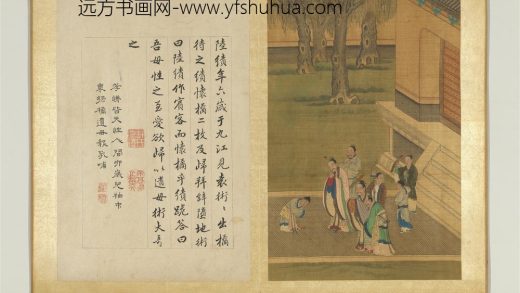 远方书画网-www.yfshuhua.com
陸績年六歲于九江見袁術、出橘
待之績懷橘二枚及歸拜辭墮地術
曰陸績作賓客而懷橘乎績跪答曰
吾母性之至愛欲歸以遺母術大奇
之
孝悌皆天性人間六歲兒袖中
懷綠橘遺母報乳哺